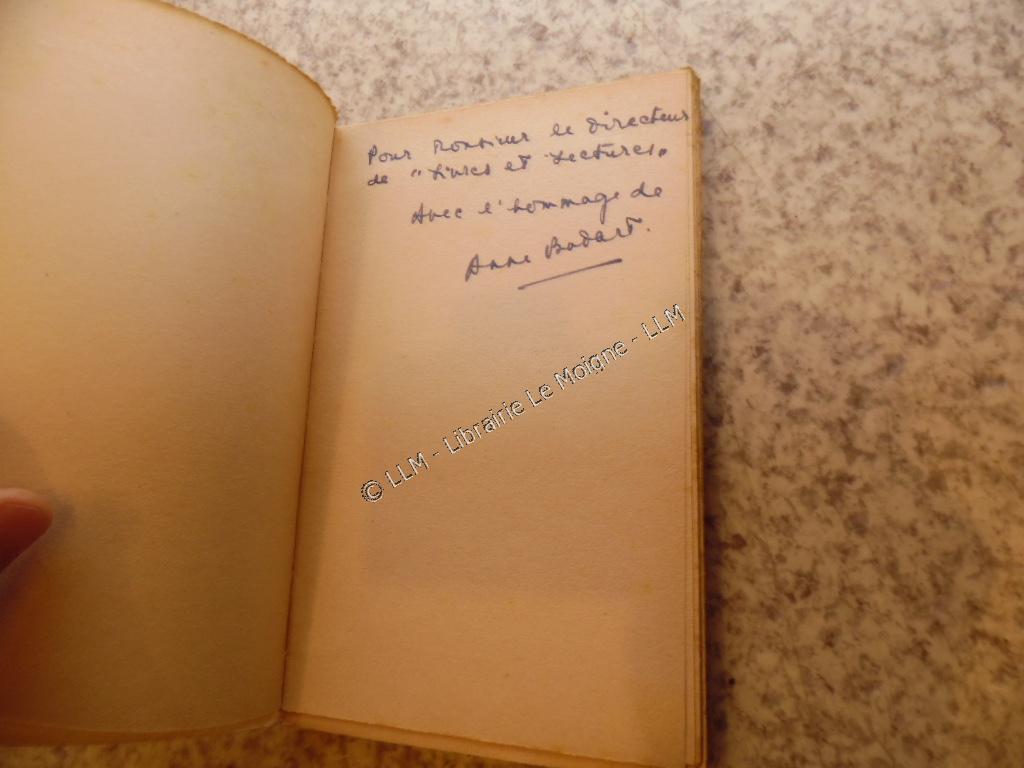 Pour Monsieur le Directeur
de "Livres et Lectures"
Avec l'hommage de
Anne Bodart.
© LLM - Librairie Le Moigne - LLM